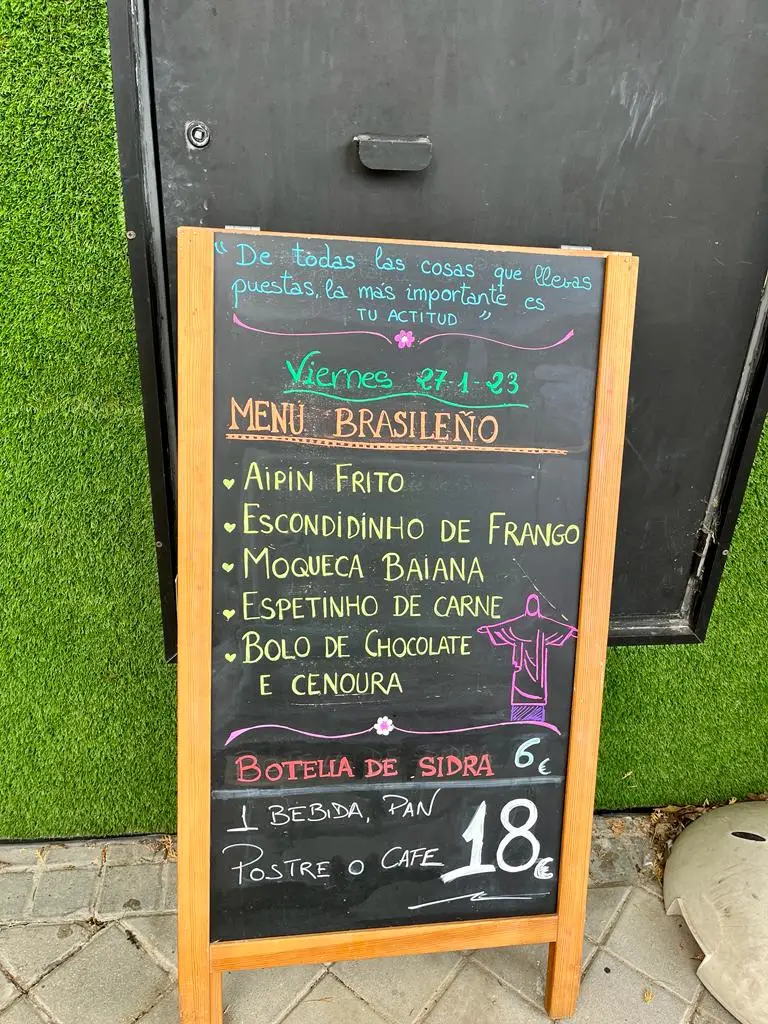 " De todas las cosas que llevas
puestas, la más importante es
TU ACTITUD "
Viernes 27-1-23
MENU BRASILEÑO
AIPIN FRITO
ESCONDIDINHO DE FRANGO
MOQUECA BAIANA
ESPETINHO DE CARNE
BOLO DE CHOCOLATE
E CENOURA
BOTELLA DE SIDRA 6€
1 BEBIDA, PAN
POSTRE O CAFE 18€